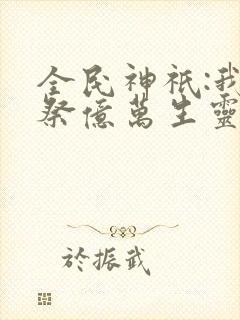 全民神祇:我
祭億萬生靈
於振武